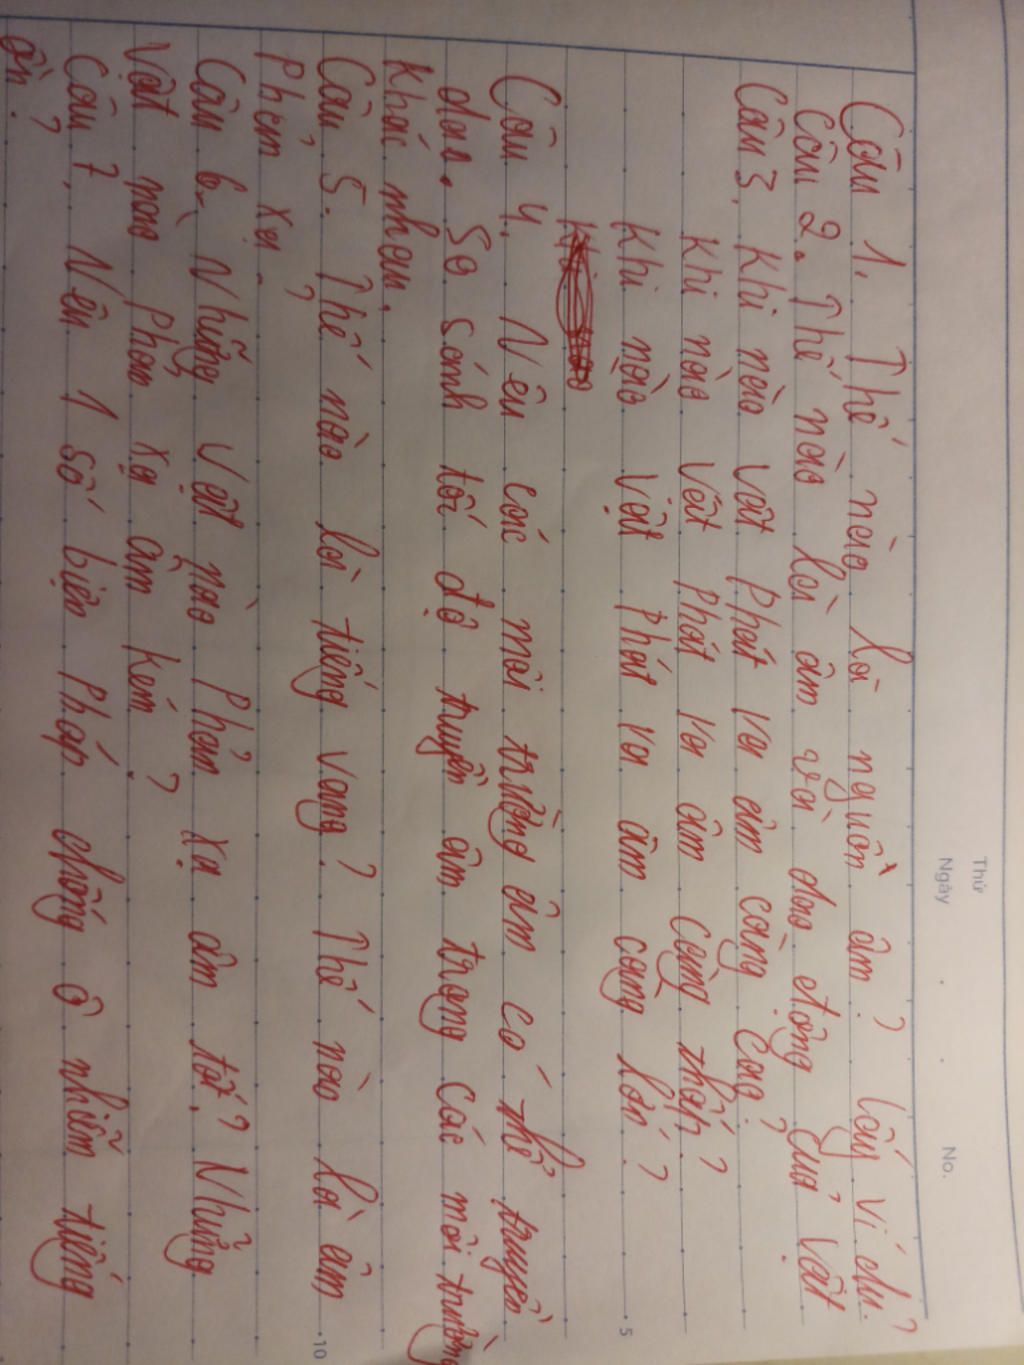 Thứ
Ngày . .
No.
Câu 1. Thế nào là nguồn âm? Lấy ví dụ?
Câu 2. Thế nào là âm và dao động của vật
Câu 3. Khi nào vật phát ra âm càng cao?
Khi nào vật phát ra âm càng thấp?
Khi nào vật phát ra âm càng lớn?
5
Câu 4. Nêu các môi trường âm có thể truyền
dao. So sánh tốc độ truyền âm trong các môi trường
khác nhau.
Câu 5. Thế nào là tiếng vang? Thế nào là âm
phản xạ?
10
Câu 6. Những vật nào phản xạ âm tốt? Những
vật nào phản xạ âm kém?
Câu 7. Nên 1 số biện pháp chống ô nhiễm tiếng
ồn?